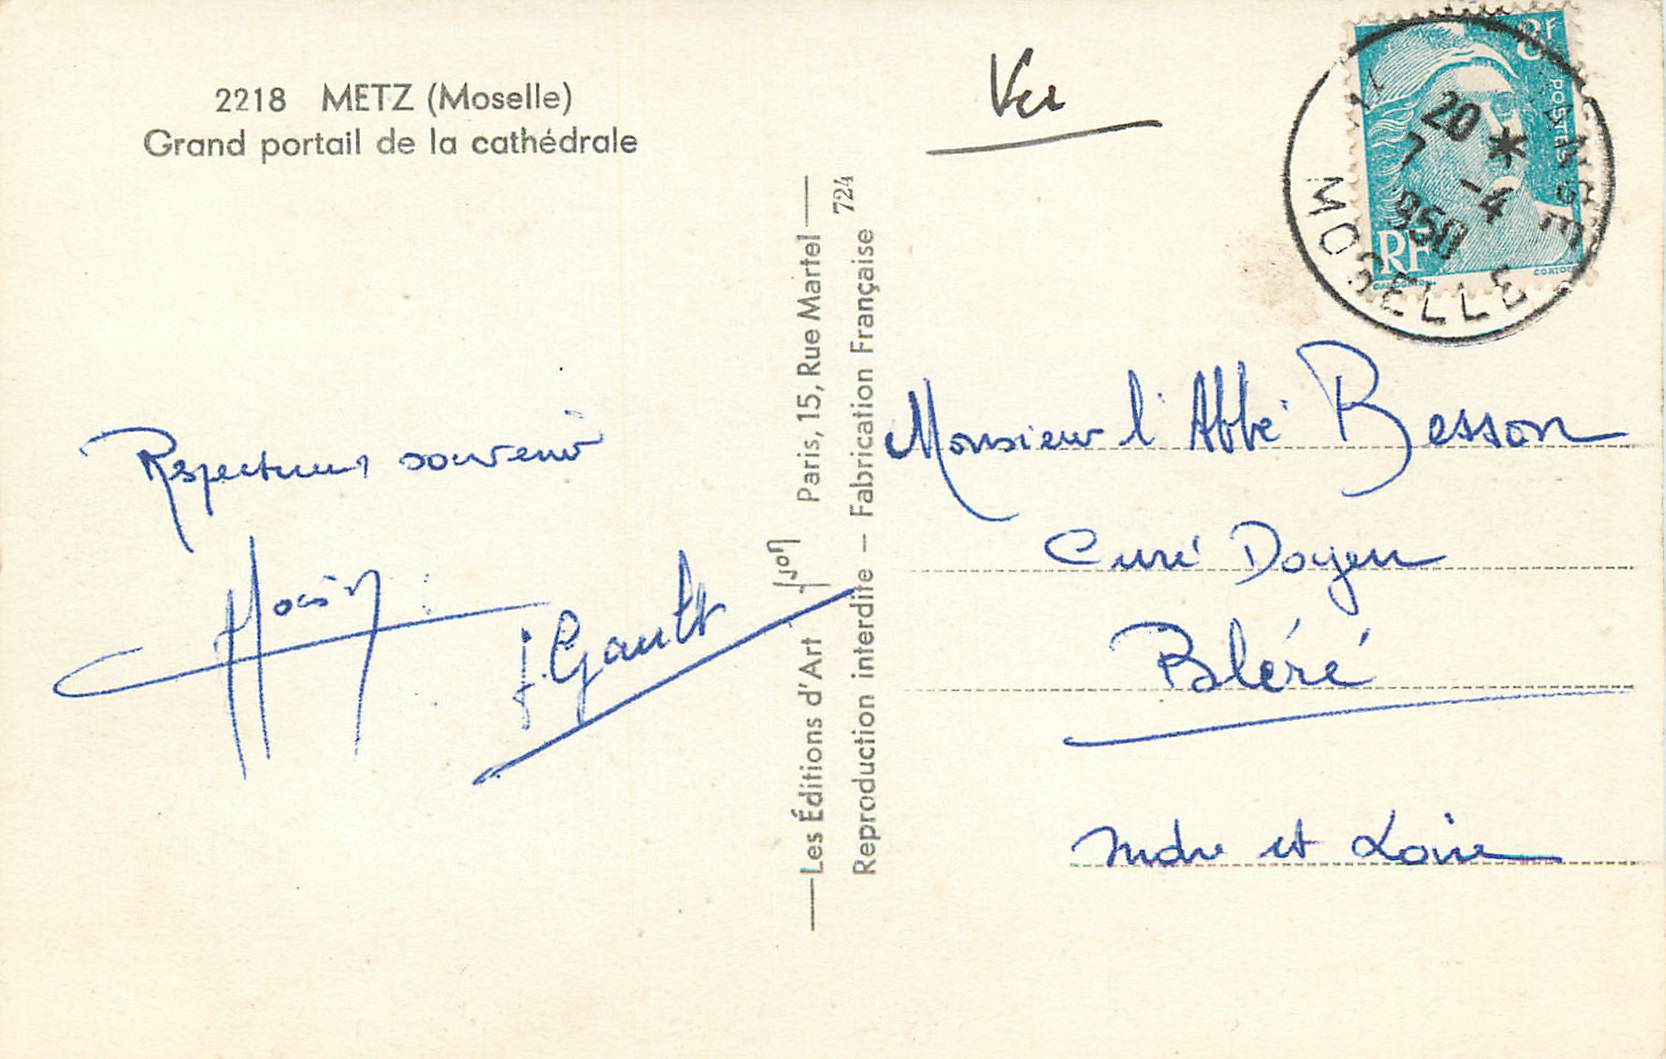 2218 METZ (Moselle)
Grand portail de la cathédrale
Respectueux souvenir
J. Gault
Les Éditions d'Art Yvon Paris, 15, Rue Martel
Reproduction interdite – Fabrication Française 724
Ver
8F
POSTES
RF
20 *
7 -4
950
MOSELLE
Monsieur l'Abbé Besson
Curé Doyen
Bléré
Indre et Loire